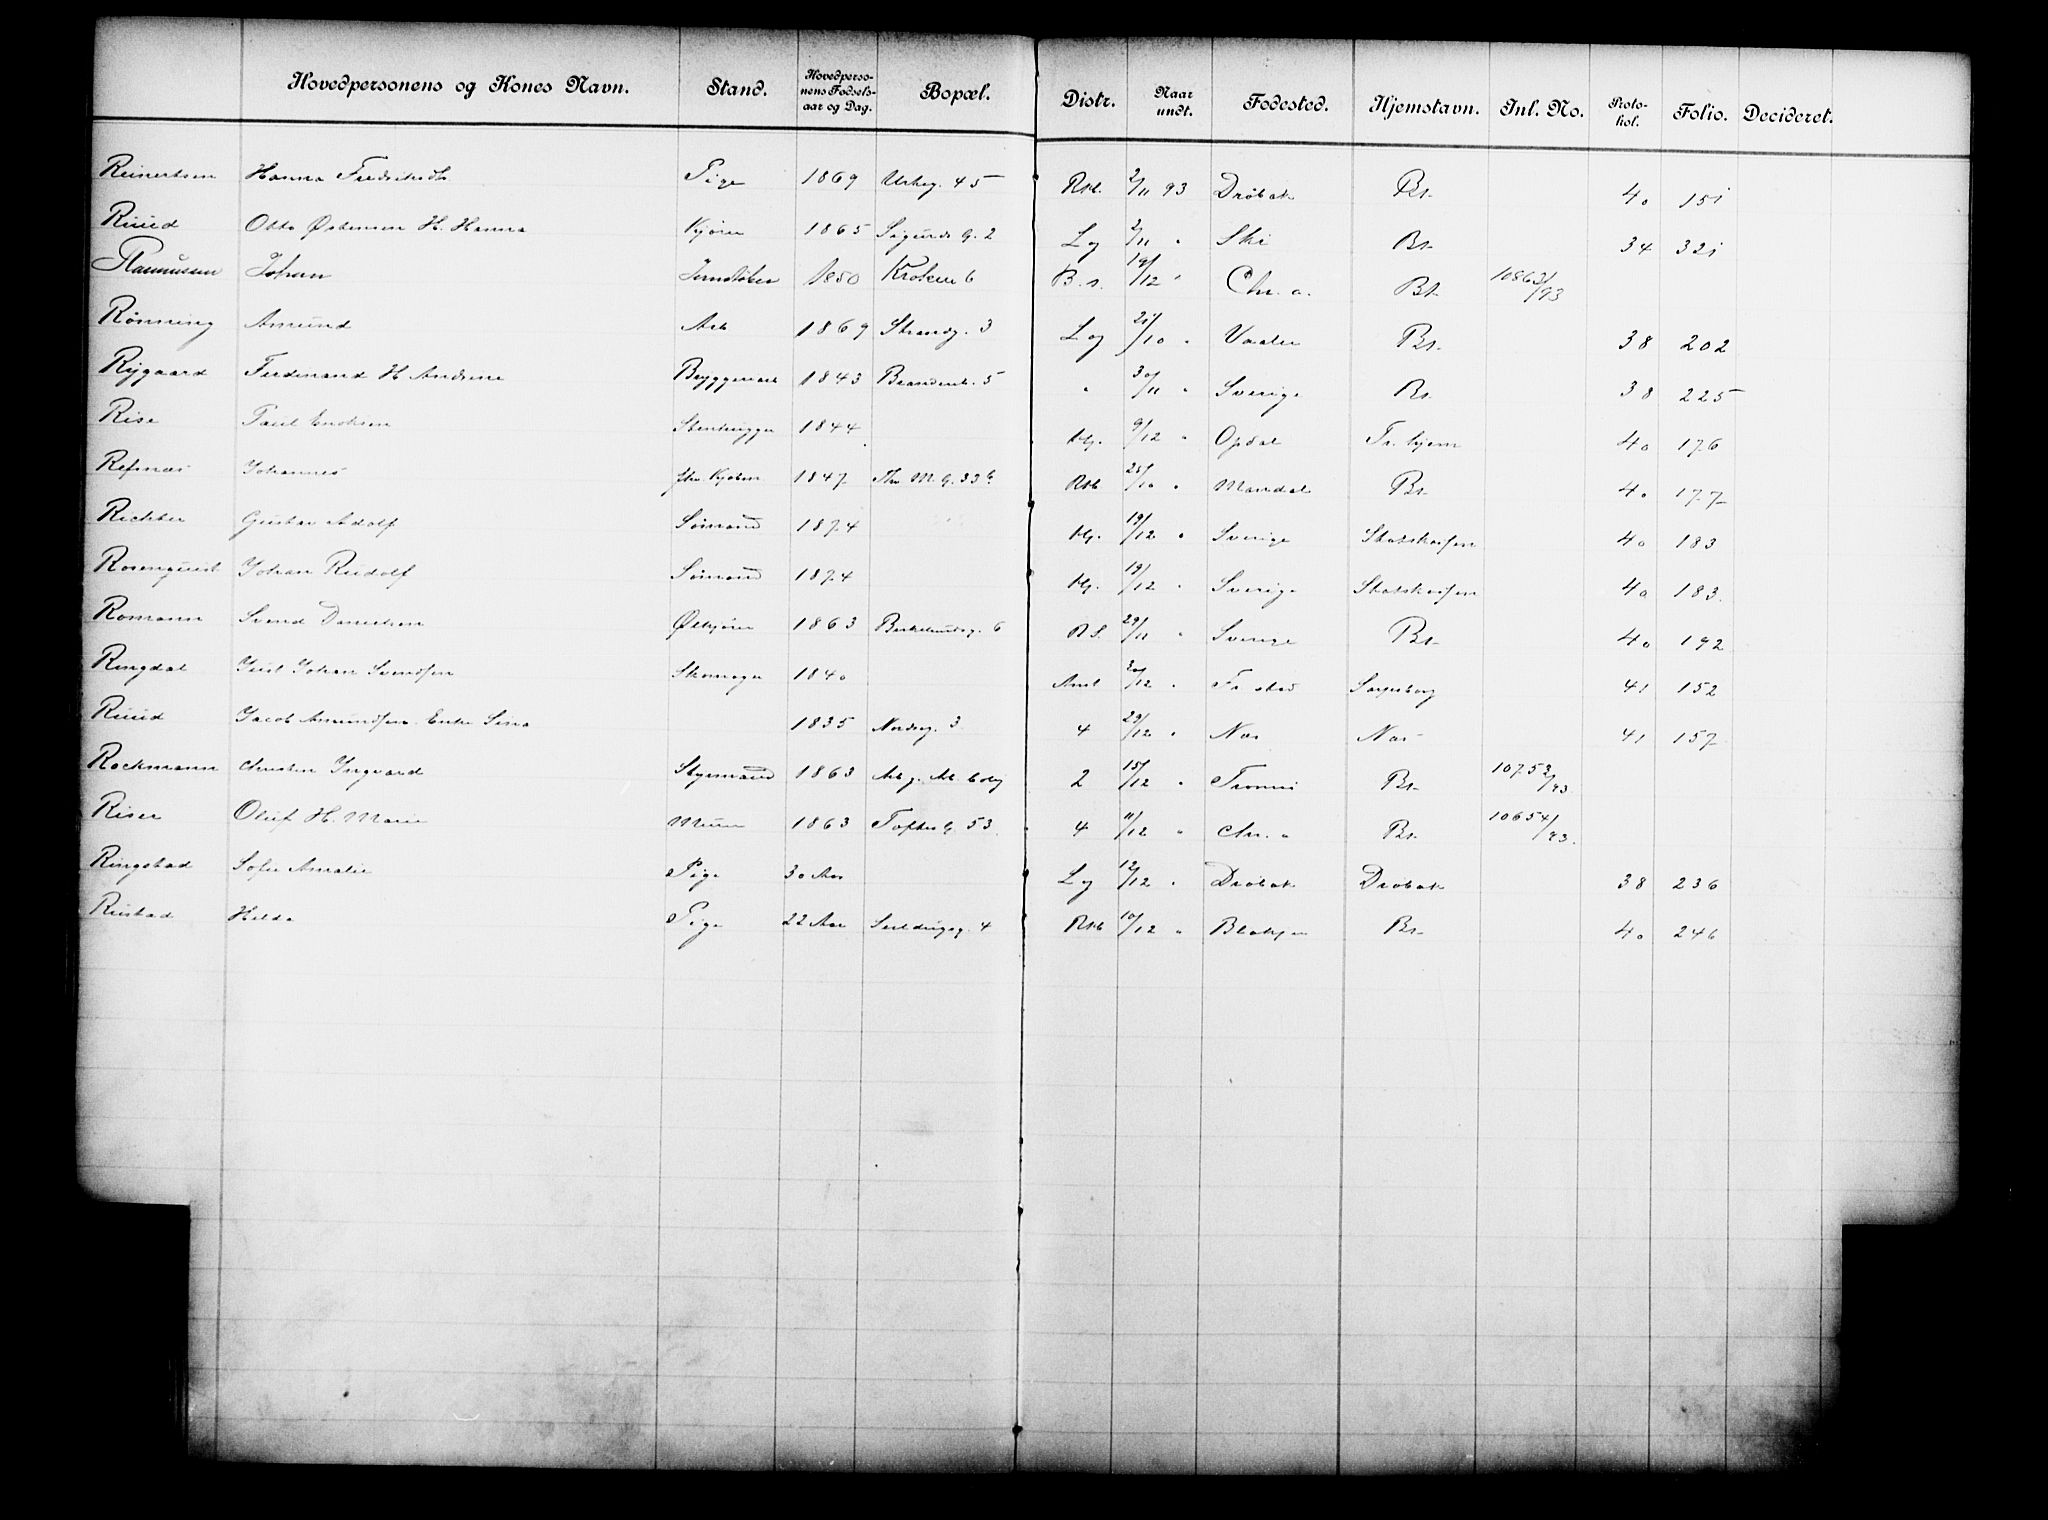 Hovedpersonens og Kones Navn. Stand. Hovedpersonens Fødselsaar og Dag. Bopæl. Distr. Naar undt. Fødested. Hjemstavn. Inl. No. Protokol. Folio. Decideret.
Reinertsen Hanna Fredriksdt. Pige 1869 45 Rst. 2/11 93 Drøbak Bt. 40 151
Ruud Otto Østensen H. Hanna Kjører 1865 Sigurds G. 2 Lg 2/11 " Ski Bt. 34 321
Rasmussen Johan Jernstøber 1850 Kroken 6 B.s. 19/12 " Chr.a. Bt. 10863/93
Rønning Amund Arb 1869 Strandg. 3 Lg 21/10 " Vaaler Bt. 38 202
Rygaard Ferdinand H Andrine Bryggerarb 1843 5 " 30/11 " Sverige Bt. 38 225
Rise Paul Stenhugger 1844 9/12 " Opdal Tr.hjem 40 176
Refsnæs Johannes 1847 Thv M. G. 33 b. Rst 25/10 " Mandal Bt. 40 177
Richter Gustav Adolf Sømand 1874 19/12 " Sverige Statskassen 40 183
Rosenquist Johan Rudolf Sømand 1874 19/12 " Sverige Statskassen 40 183.
Romann Svend Danielsen Ølkjører 1863 6 R S. 29/11 " Sverige Bt. 40 192
Ringdal Just Johan Svendsen Skomager 1840 Amt 30/12 " Fr.stad Sarpsborg 41 152
Ruud Jacob Amundsen Enke Sina 1835 Nordreg. 3 4 29/12 " Nes Nes 41 157
Rockmann Christen Ingvard Styrmand 1863 2 15/12 " Tromsø Bt. 10752/93.
Riser Oluf H. Marie Murer 1863 Toftes G. 53. 4 11/12 " Chr.a Bt. 10654/93.
Ringstad Sofie Amalie Pige 30 Aar Lg 12/12 " Drøbak Drøbak 38 236
Rustad Hilda Pige 22 Aar 4 Rst 10/12 " Blakjer Bt. 40 246